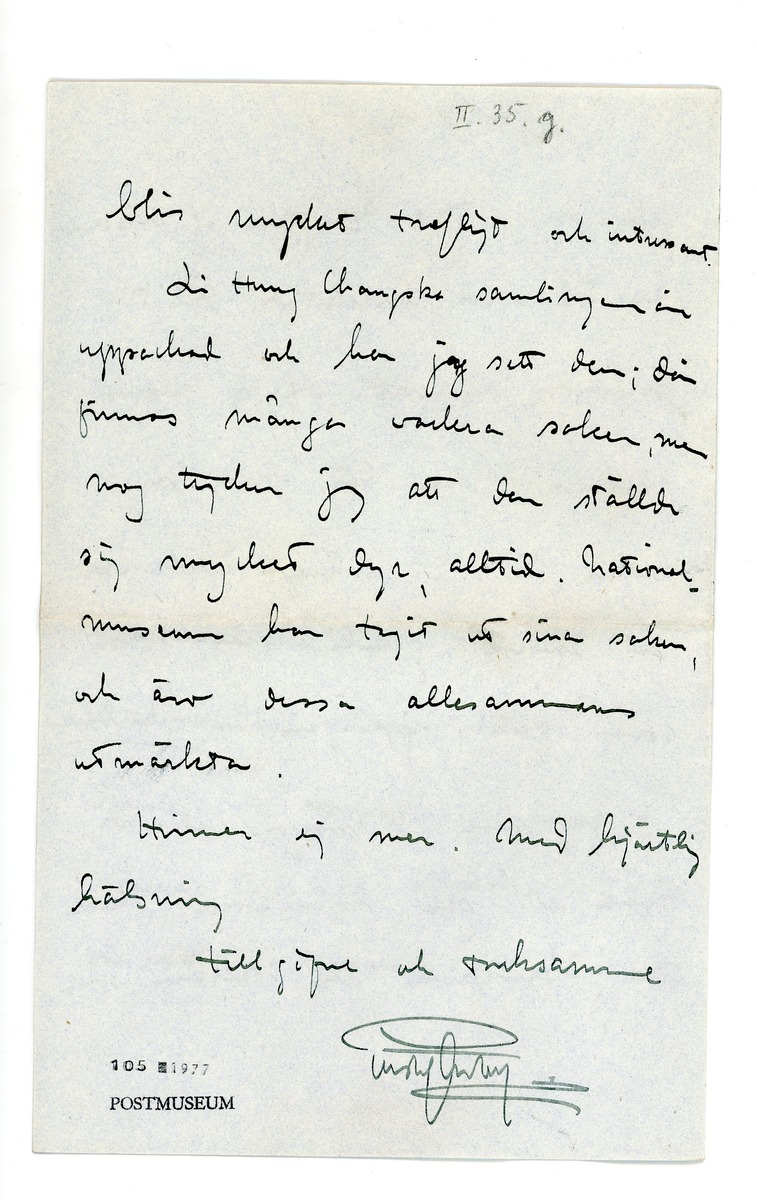 II. 35. g.
blir mycket trefligt och intressant.
Li Hung Changska samlingen är
uppackad och har jag sett den; där
finnas många vackra saker, men
nog tycker jag att den ställde
sig mycket dyr, alltid. National-
museum har tagit ut sina saker,
och äro dessa allesammans
utmärkta.
Hinner ej mer. Med hjärtlig
hälsning
tillgifne och tacksamme
105 1977
POSTMUSEUM